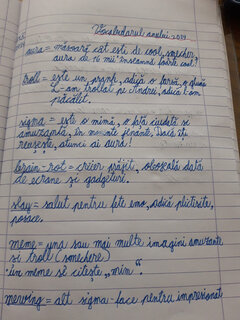 Vocabularul anului 2024
aura = măsoară cât este de cool, smecher,
aura de 16 mii înseamnă foarte cool?
troll = este un prank, adică o farsă, o glumă
L-am trollat pe Andrei, adică l-am
păcălit.
sigma = este o mimă, o față ciudată și
amuzantă, în momente jenante. Dacă îți
reușește, atunci ai aura!
brain-rot = creier prăjit, oboseala dată
de ecrane și gadgeturi.
slay = salut pentru fete emo, adică plictisite,
posace.
meme = una sau mai multe imagini amuzante
și troll (smechere)
un meme se citește „mim”.
mewing = alt sigma-face pentru impresionat